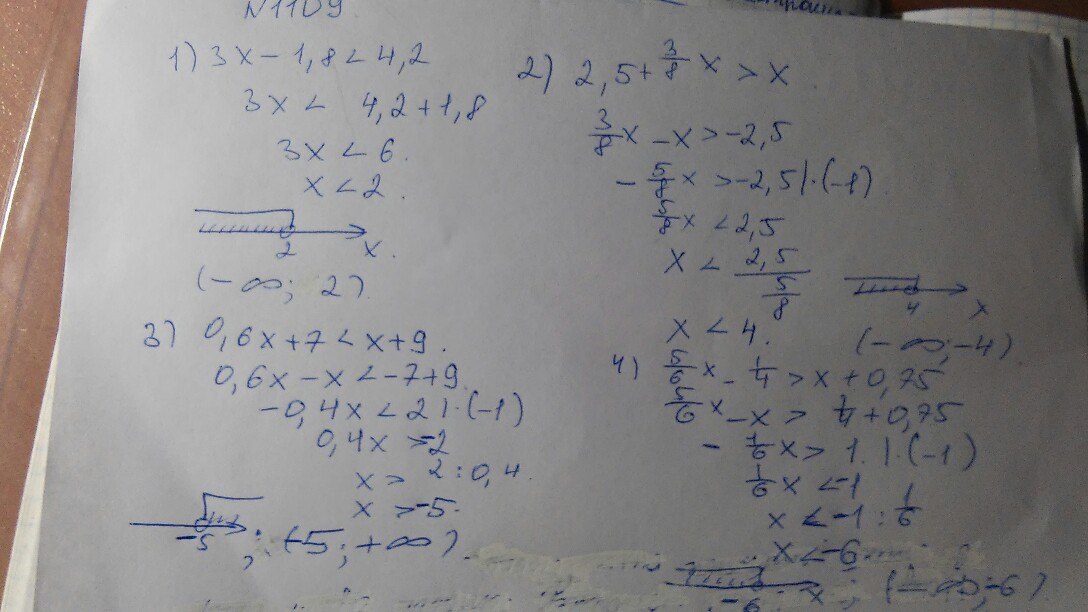 N1109
1) 3x - 1,8 < 4,2
3x < 4,2 + 1,8
3x < 6.
x < 2
2 x.
(-∞; 2)
2) 2,5 + 3/8 x > x
3/8 x - x > -2,5
- 5/8 x > -2,5 | · (-1)
5/8 x < 2,5
x < 2,5 / 5/8
x < 4.
4 x
(-∞; -4)
3) 0,6x + 7 < x + 9.
0,6x - x < -7 + 9
-0,4x < 2 | · (-1)
0,4x > -2
x > 2 : 0,4.
x > -5.
-5 ; (-5; +∞)
4) 5/6 x - 1/4 > x + 0,75
5/6 x - x > 1/4 + 0,75
- 1/6 x > 1. | · (-1)
1/6 x < -1
x < -1 : 1/6
x < -6
-6 x ; (-∞; -6)